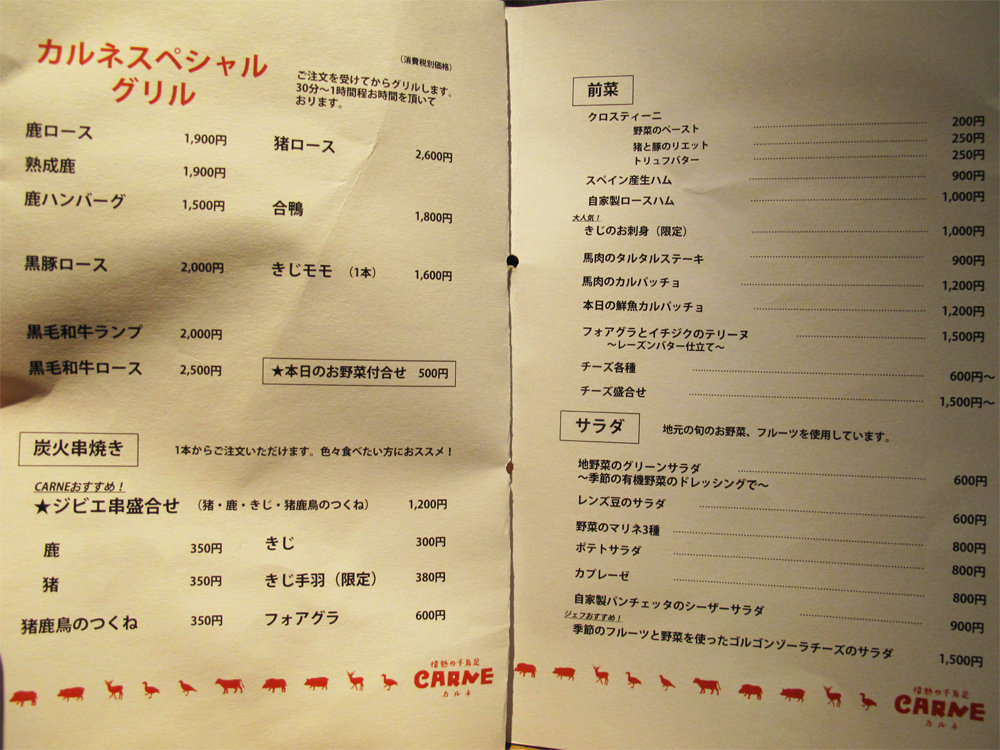 カルネスペシャル
グリル
（消費税別価格）
ご注文を受けてからグリルします。
30分～1時間程お時間を頂いて
おります。
鹿ロース 1,900円
熟成鹿 1,900円
鹿ハンバーグ 1,500円
黒豚ロース 2,000円
黒毛和牛ランプ 2,000円
黒毛和牛ロース 2,500円
猪ロース 2,600円
合鴨 1,800円
きじモモ （1本） 1,600円
★本日のお野菜付合せ 500円
炭火串焼き
1本からご注文いただけます。色々食べたい方におススメ！
CARNEおすすめ！
★ジビエ串盛合せ （猪・鹿・きじ・猪鹿鳥のつくね） 1,200円
鹿 350円
猪 350円
猪鹿鳥のつくね 350円
きじ 300円
きじ手羽（限定） 380円
フォアグラ 600円
情熱の千鳥足
CARNE
カルネ
前菜
クロスティーニ
野菜のペースト 200円
猪と豚のリエット 250円
トリュフバター 250円
スペイン産生ハム 900円
自家製ロースハム 1,000円
大人気！
きじのお刺身（限定） 1,000円
馬肉のタルタルステーキ 900円
馬肉のカルパッチョ 1,200円
本日の鮮魚カルパッチョ 1,200円
フォアグラとイチジクのテリーヌ 1,500円
～レーズンバター仕立て～
チーズ各種 600円～
チーズ盛合せ 1,500円～
サラダ
地元の旬のお野菜、フルーツを使用しています。
地野菜のグリーンサラダ 600円
～季節の有機野菜のドレッシングで～
レンズ豆のサラダ 600円
野菜のマリネ3種 800円
ポテトサラダ 800円
カプレーゼ 800円
自家製パンチェッタのシーザーサラダ 900円
ジェフおすすめ！
季節のフルーツと野菜を使ったゴルゴンゾーラチーズのサラダ 1,500円
情熱の千鳥足
CARNE
カルネ